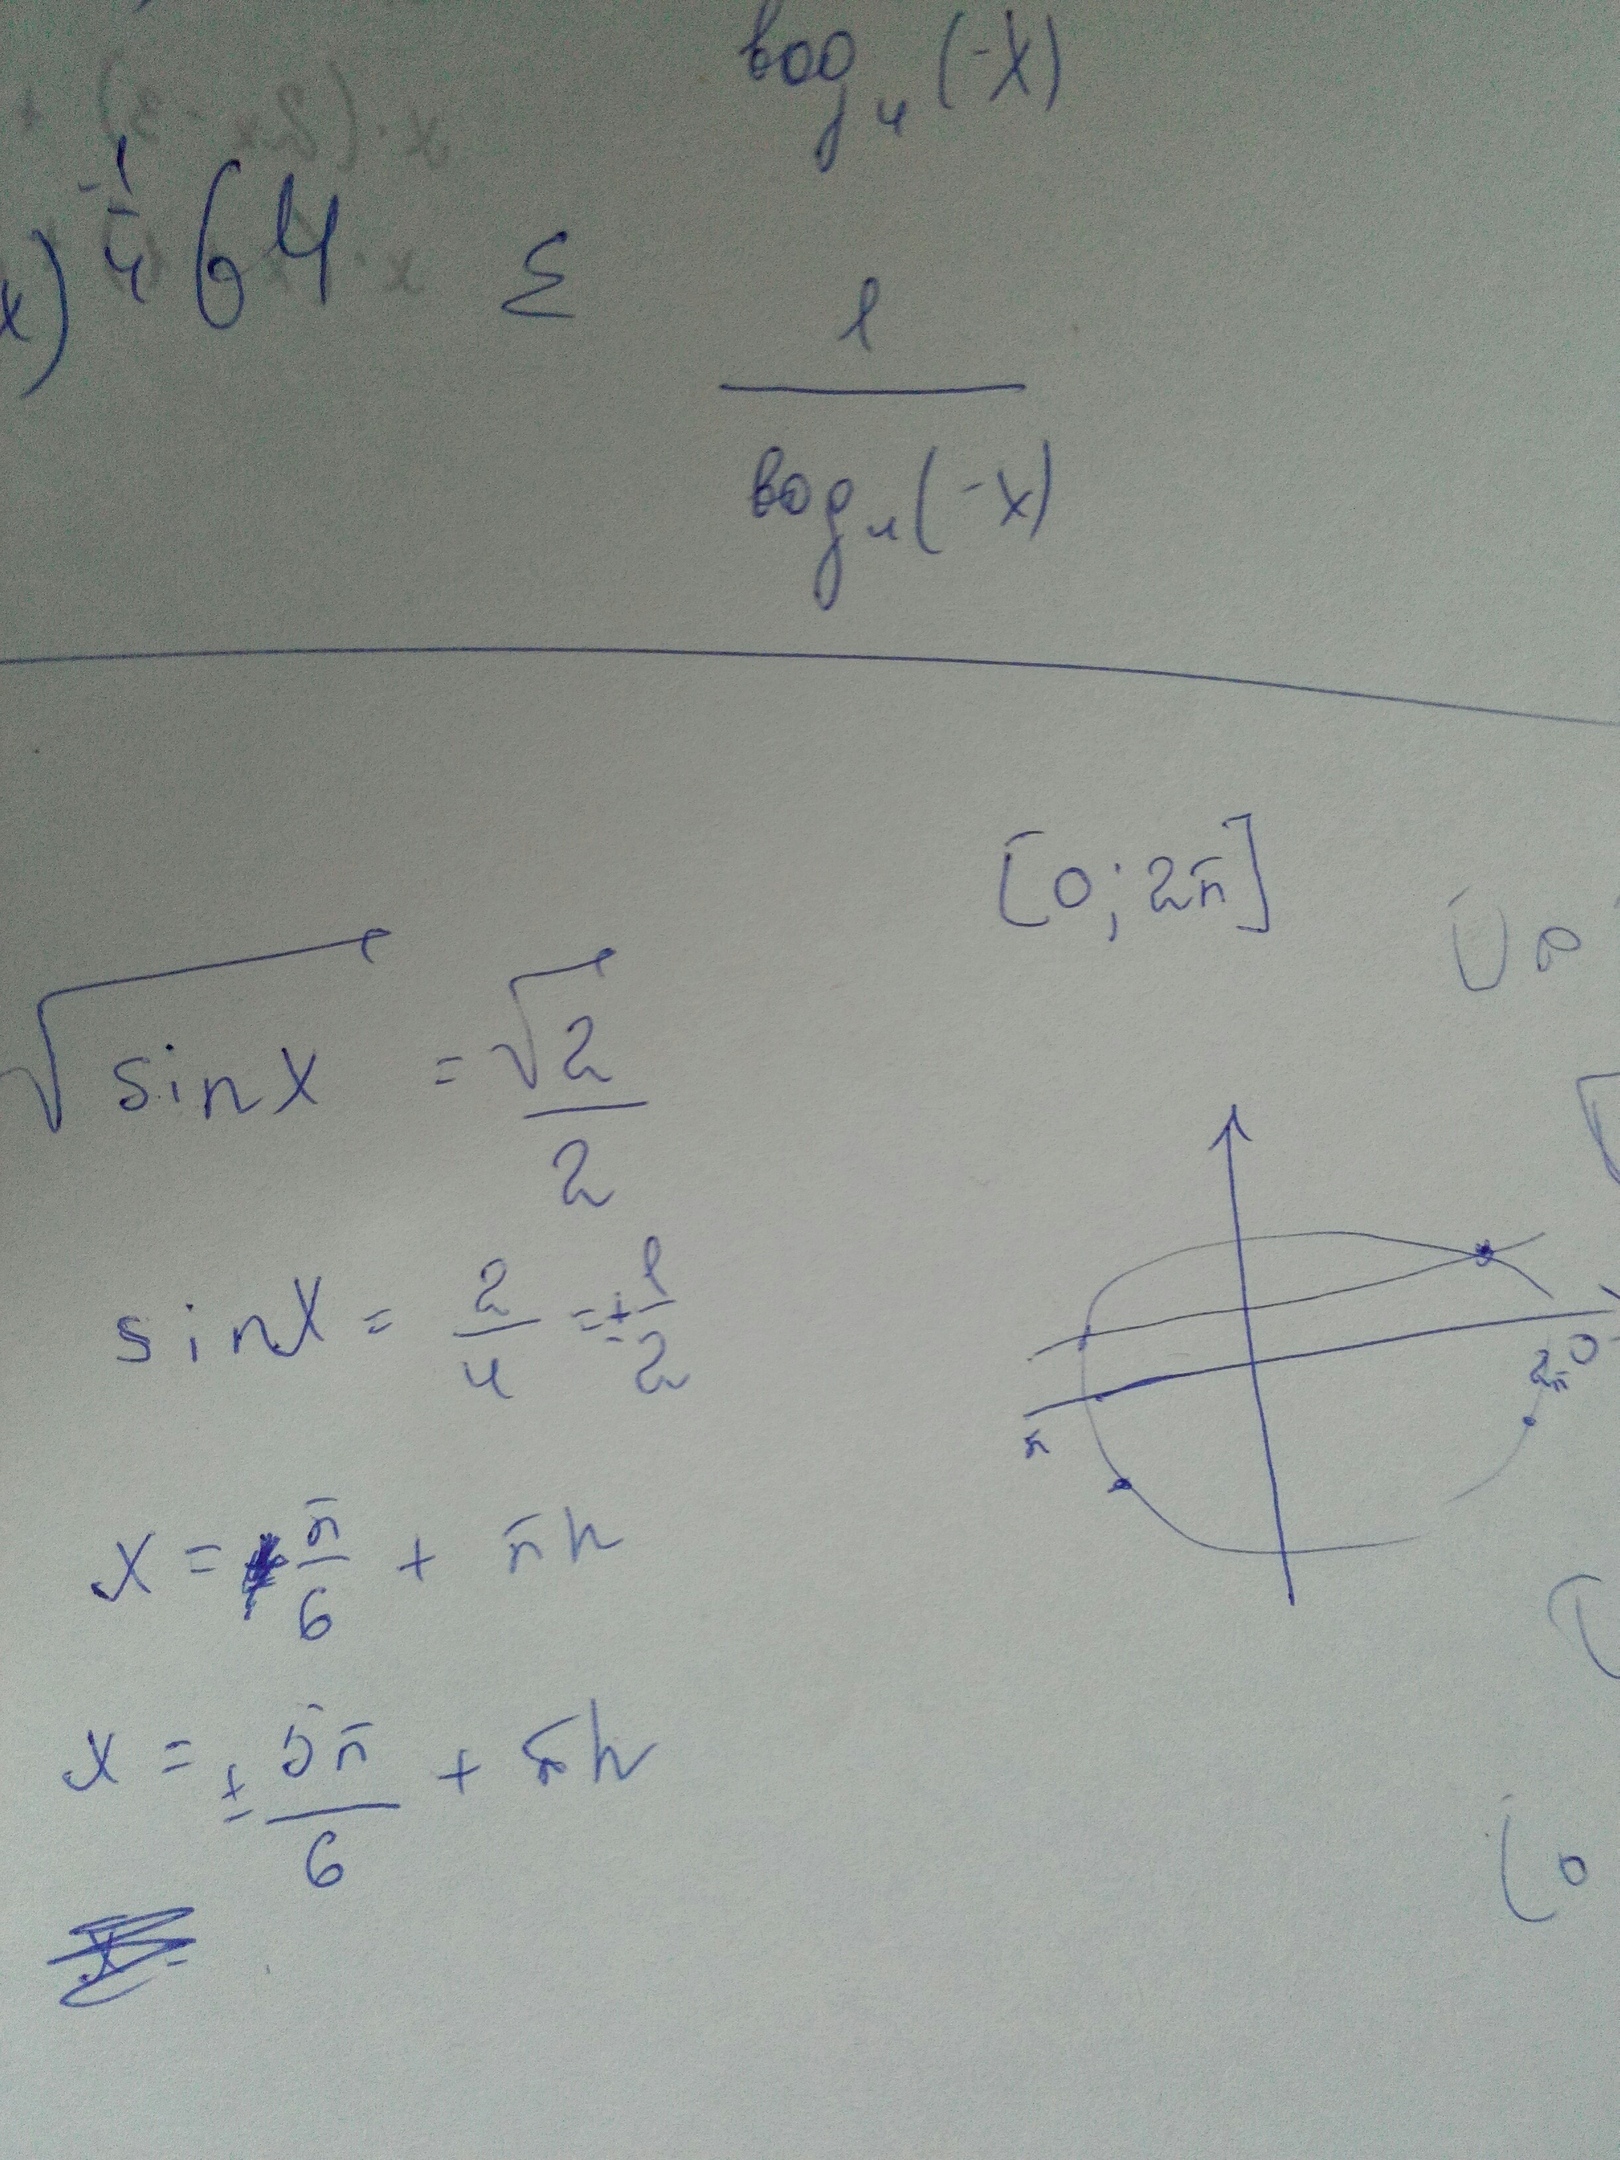 log₄(-x)
x)^-1/4 64 ≤
1/log₄(-x)
[0; 2π]
√sinx = √2/2
sinx = 2/4 = ±1/2
x = π/6 + πn
x = ±5π/6 + πn
π
2π
0